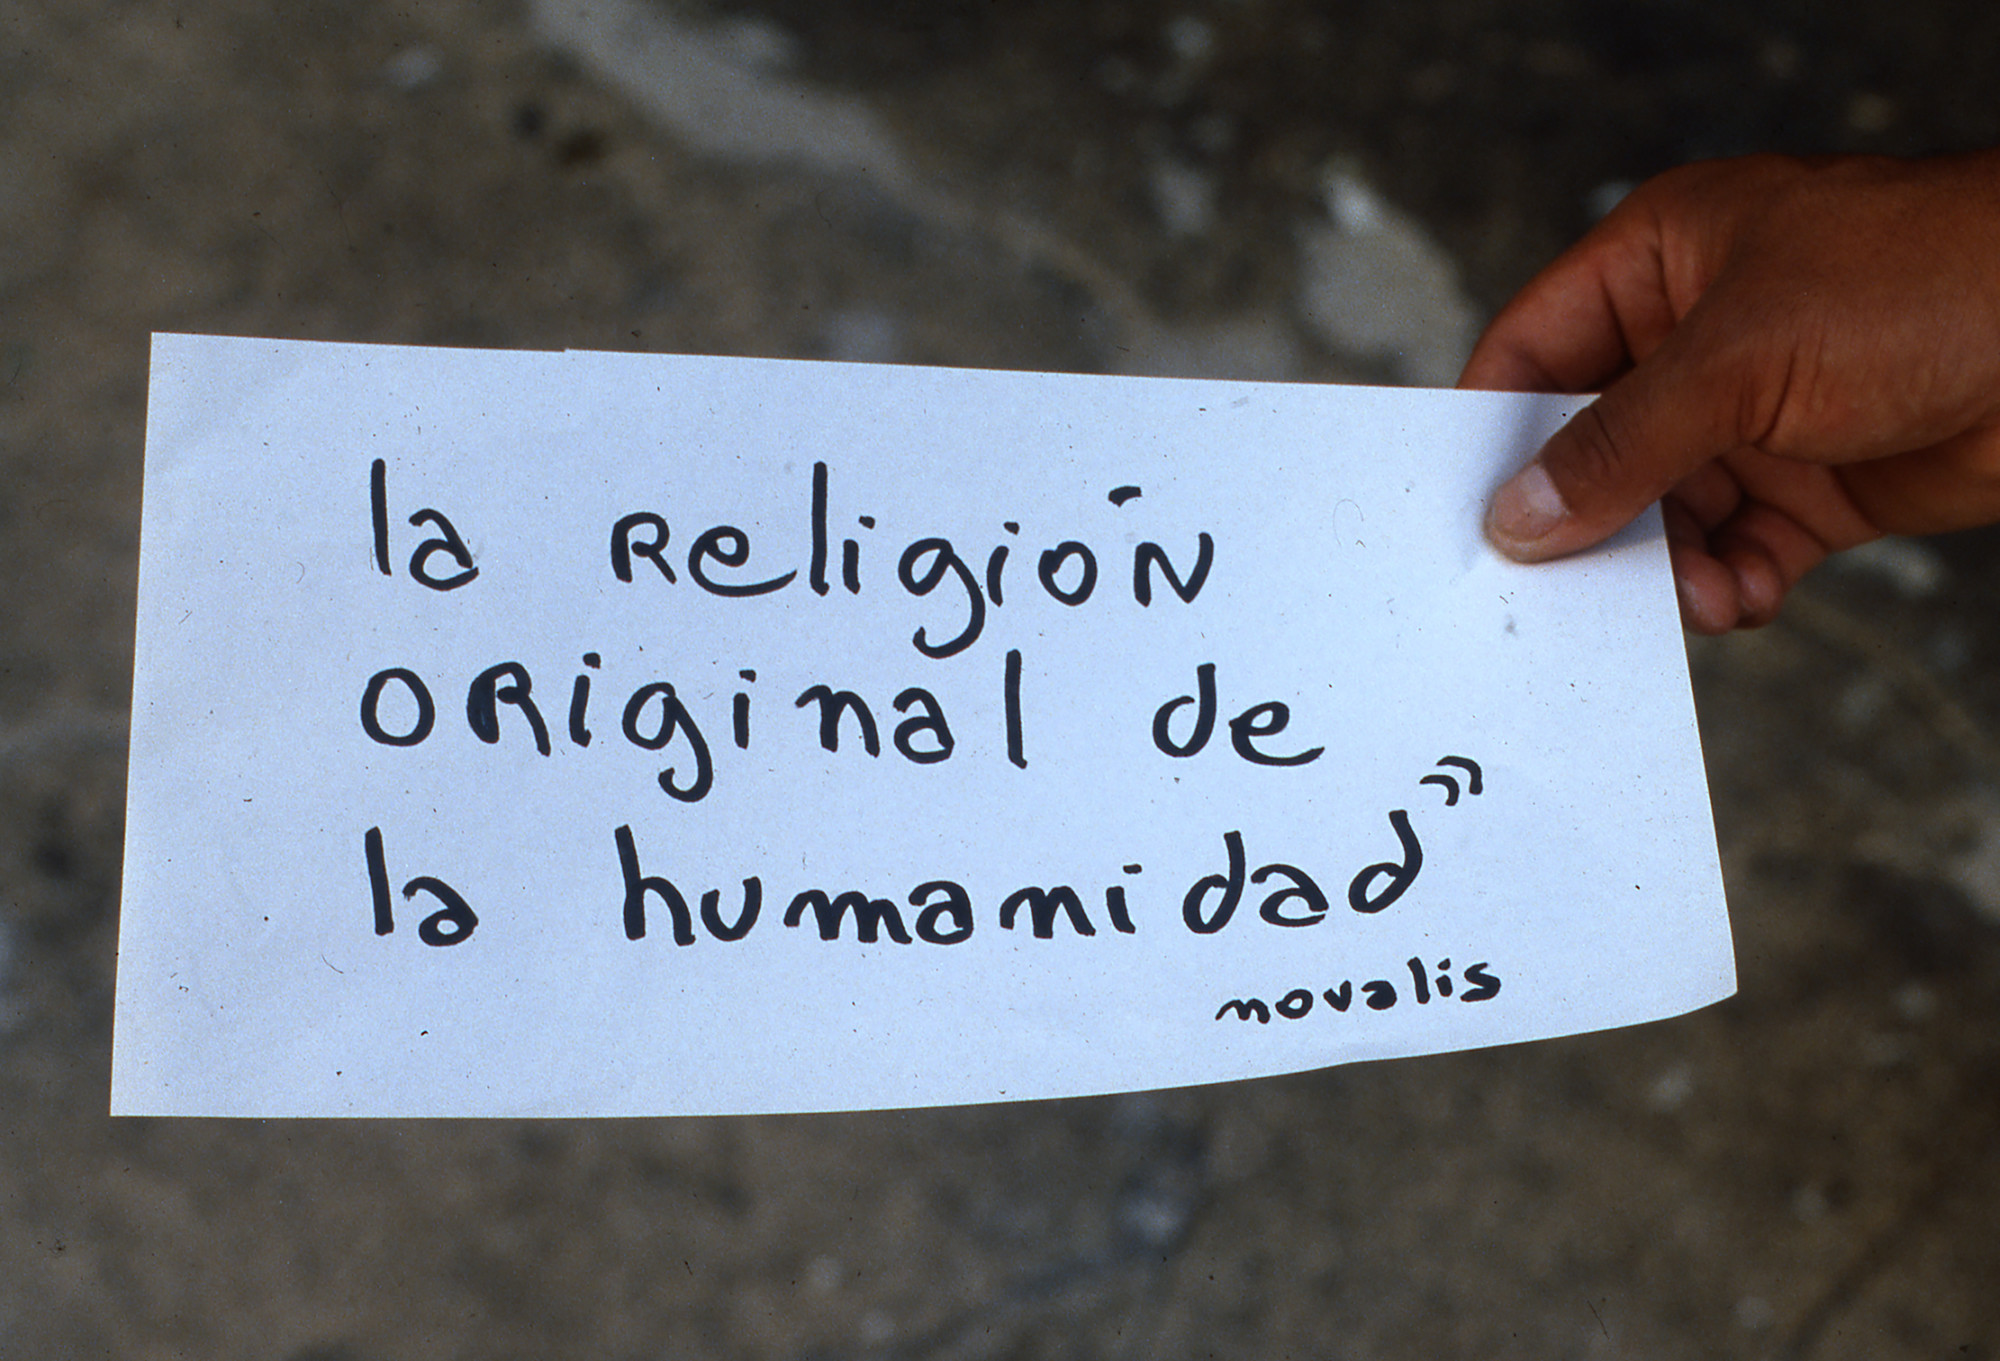 la Religión
oRiginal de
la humanidad”
novalis